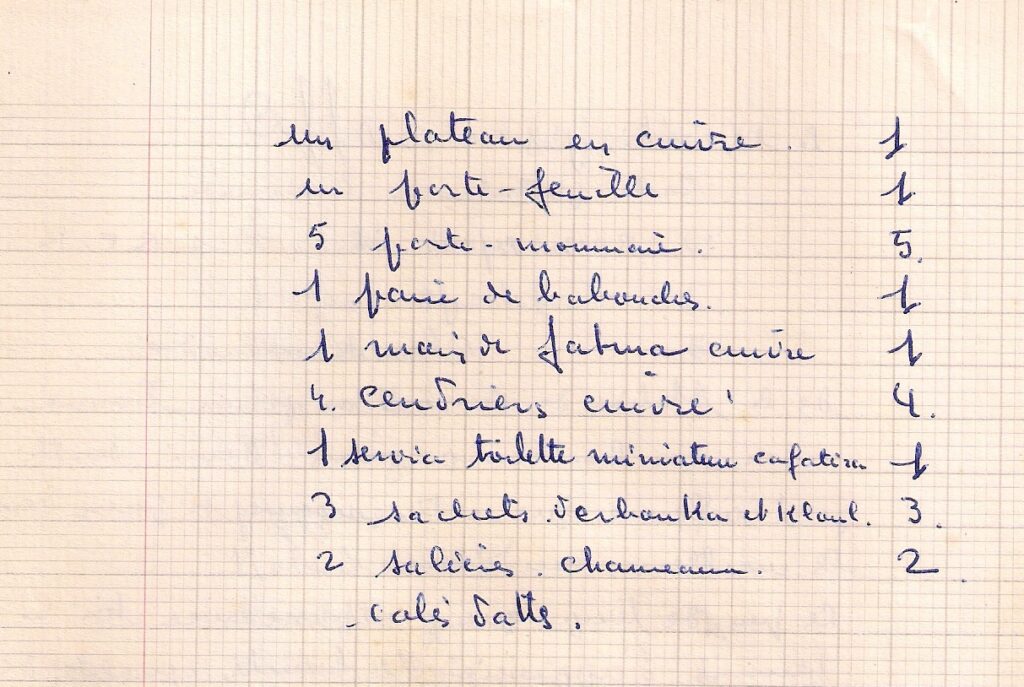 un plateau en cuivre. 1
un porte-feuille 1
5 porte-monnaie. 5.
1 paire de babouches. 1
1 main de fatma cuivre 1
4. cendriers cuivre 4.
1 service toilette miniature 1
3 sachets. 3.
2 salières. chameaux. 2.
dattes.